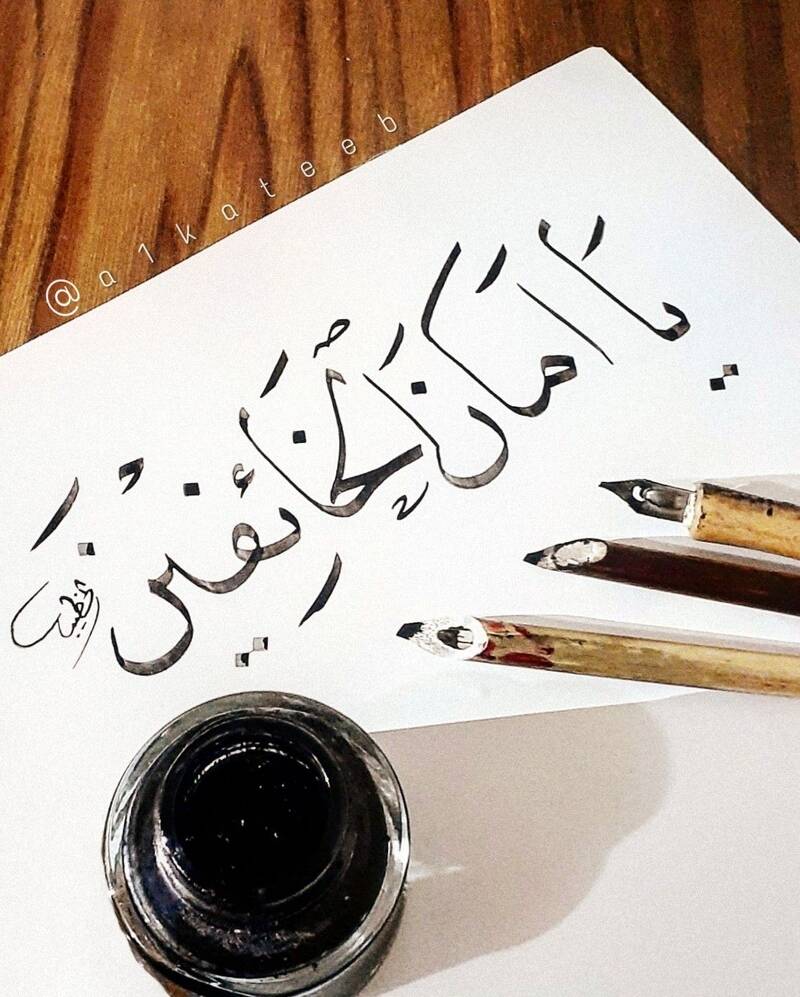 @a1kateeb
يَا اَمَانَ الْخَائِفِيْنَ
الخطيب